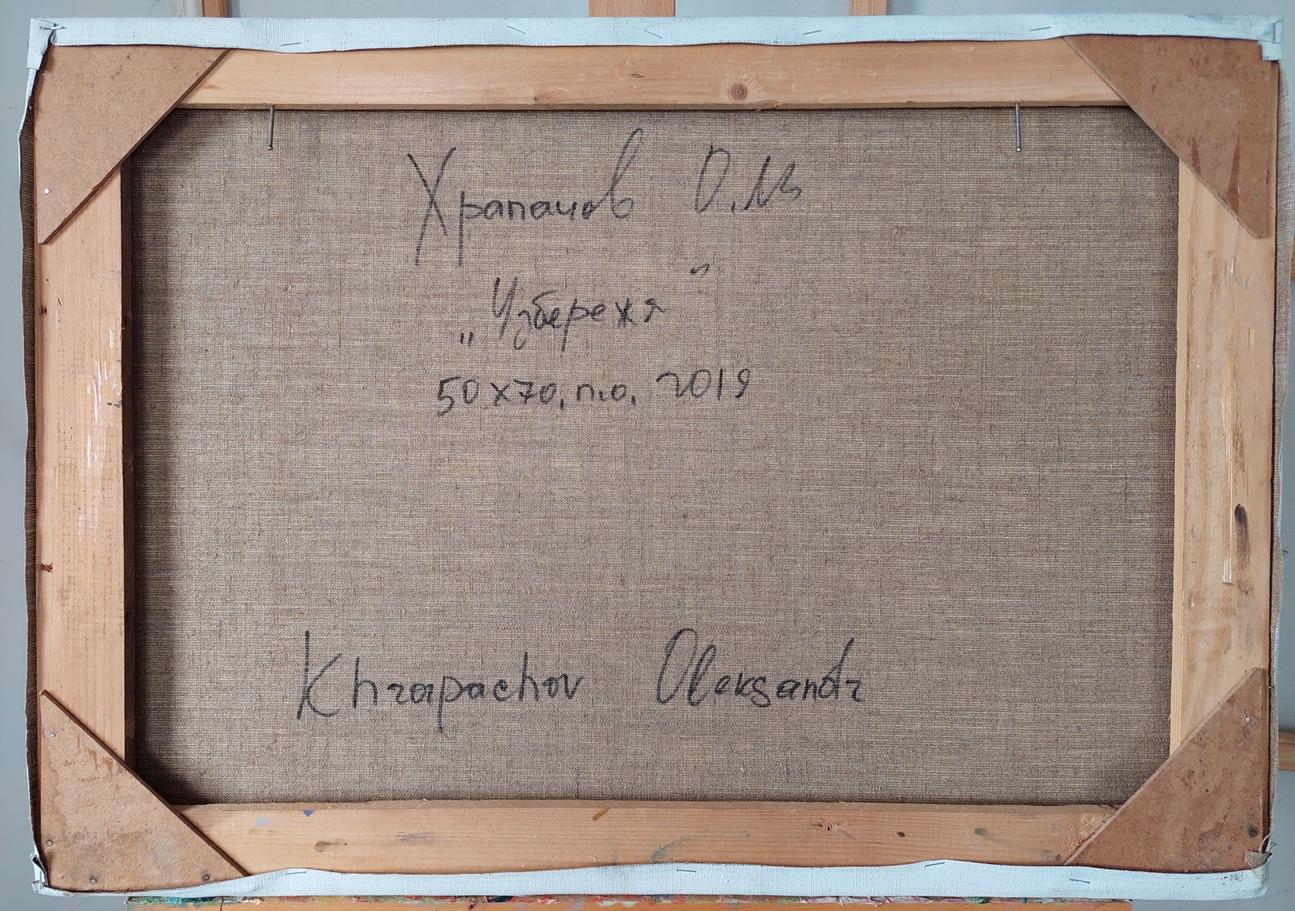 Храпачов О.М
„Узбережя"
50х70, п.о, 2019
Khrapachov Oleksandr